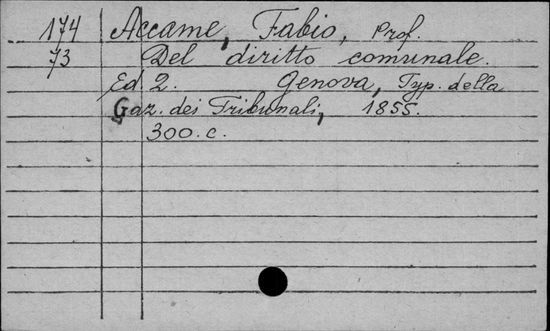 174 Accame, Fabio, Prof.
73 Del diritto comunale.
Ed. 2. Genova, Typ. della
Gaz. dei Tribunali, 1855.
300. c.